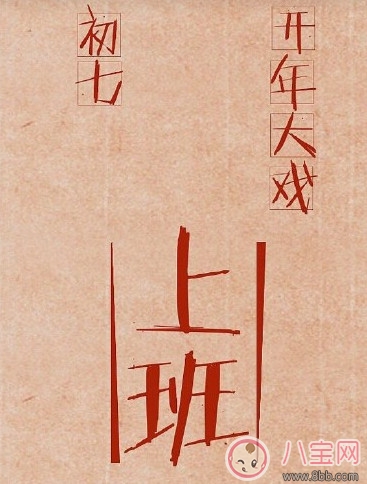 开年大戏
初七
上班
八宝网
www.8bb.com